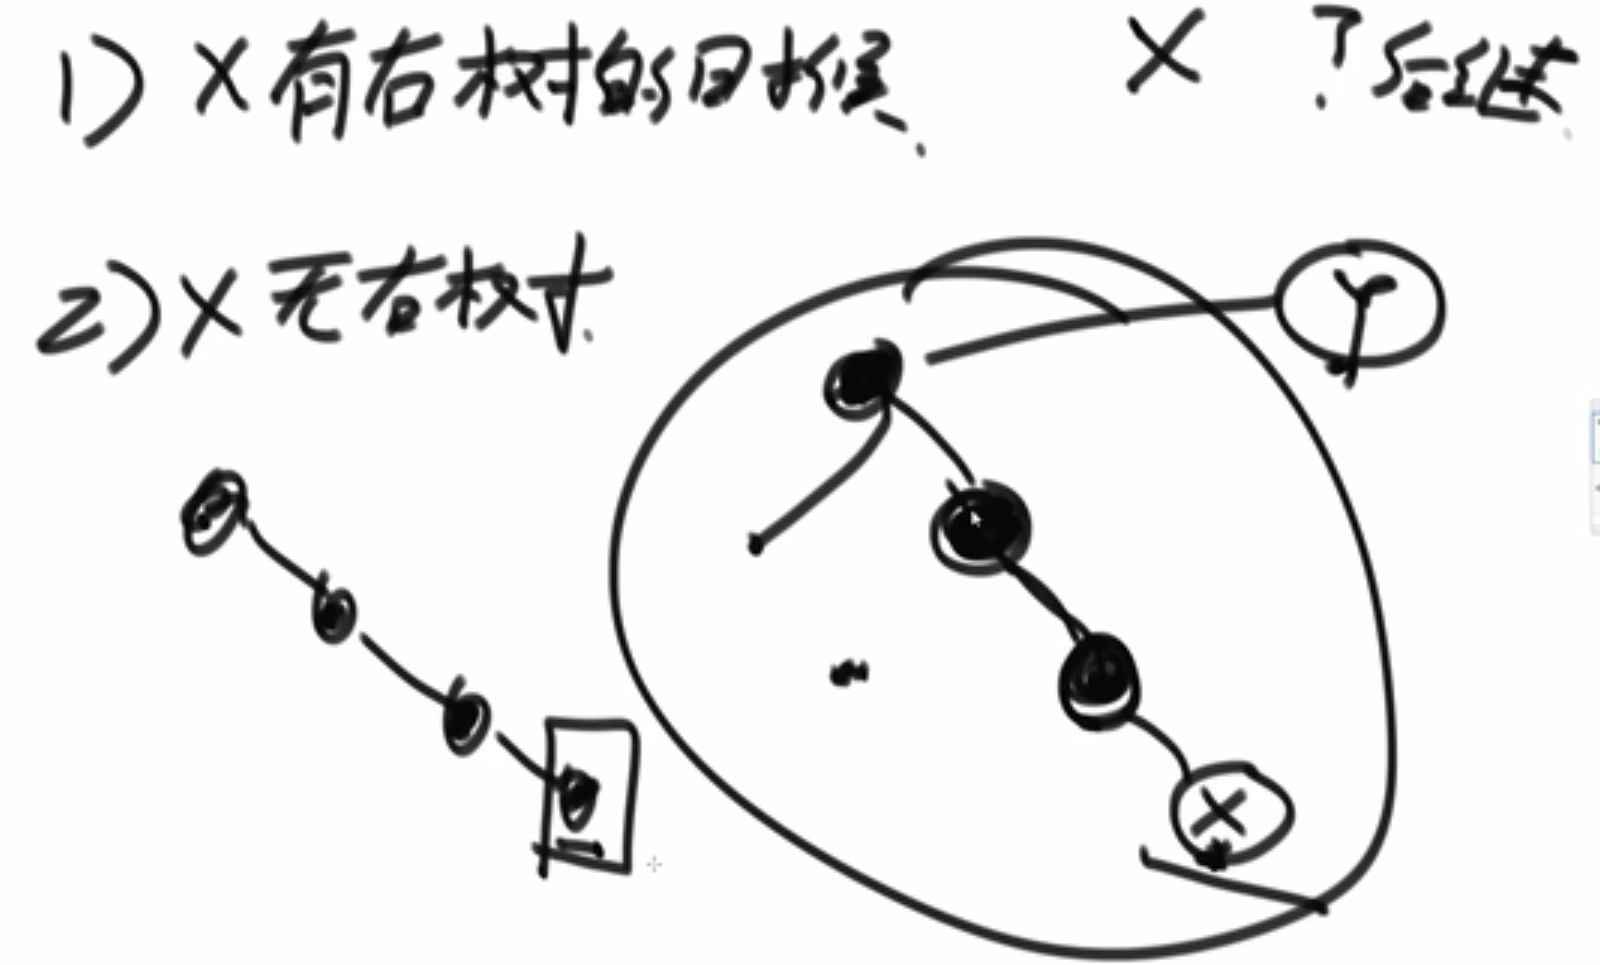 1) X有右树的时候、
X ?后继
2) X无右树.
Y
X